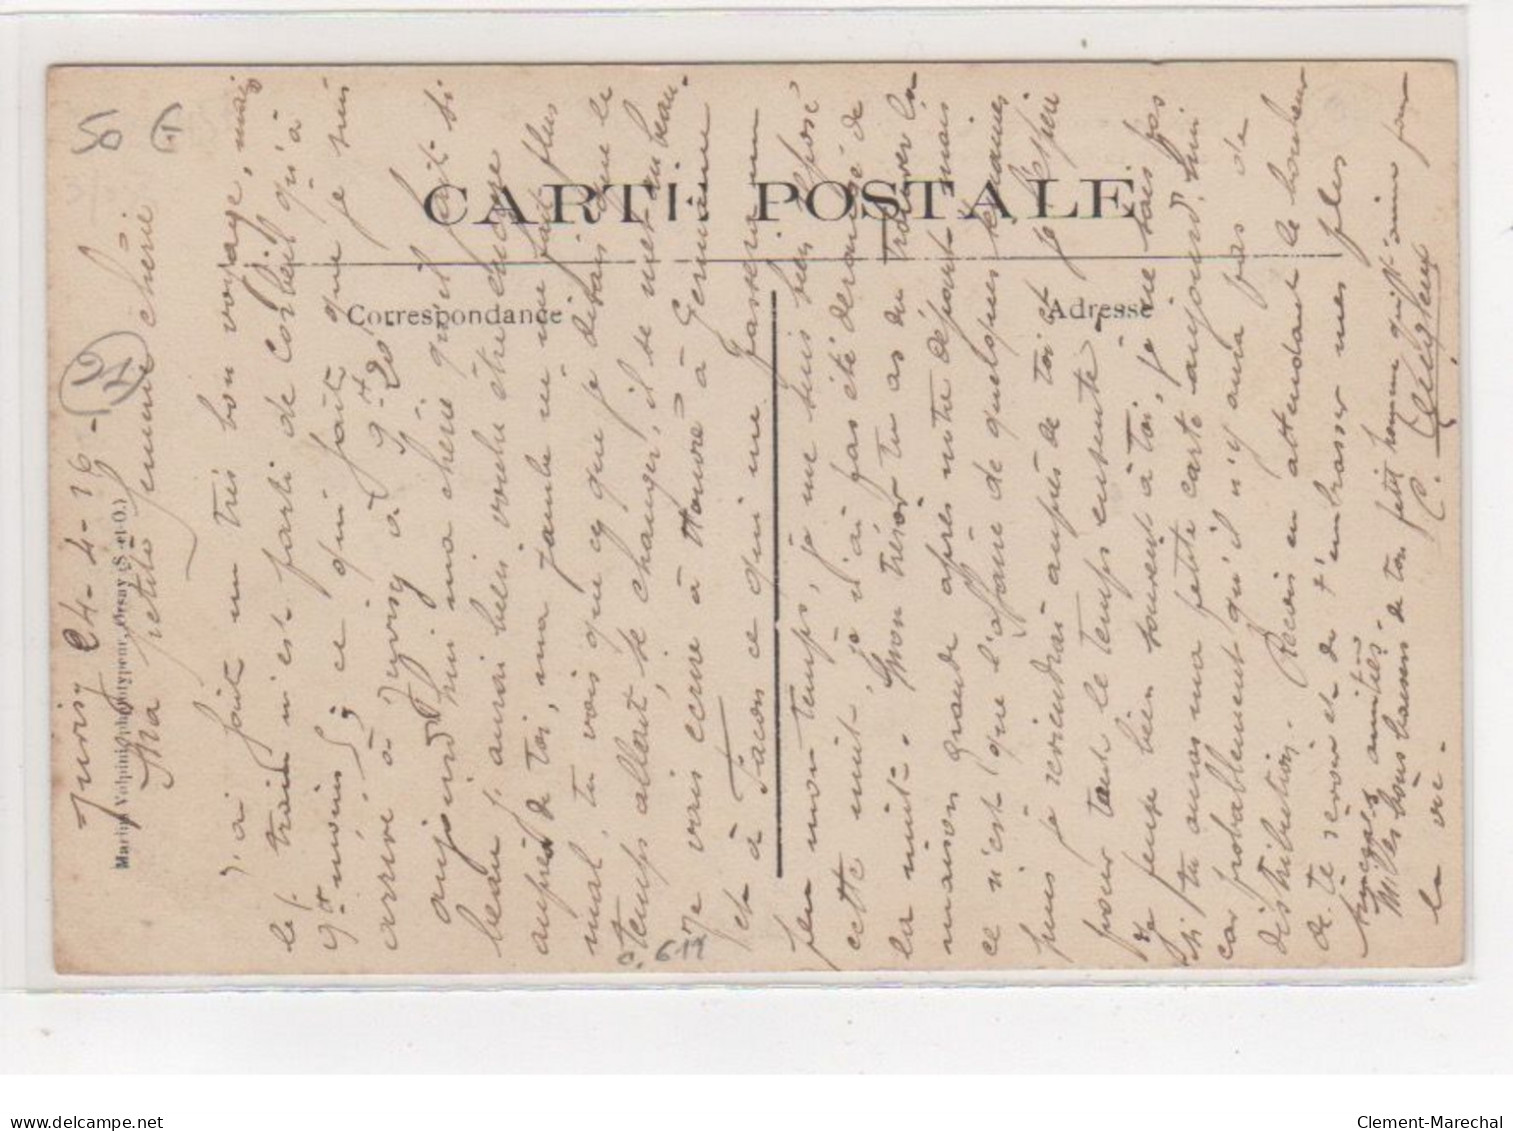 50 G
CARTE POSTALE
Correspondance
Adresse
Marius Volpini, phototypeur, Orsay (S.-et-O.)
Juvisy 24-4-16
21
Ma petite femme chérie
J'ai fait un très bon voyage, mais
le train n'est parti de Corbeil qu'à
9h moins 5, ce qui fait que je suis
arrivé à Juvisy à 9h 20.
aujourd'hui ma chérie qu'il fait si
beau j'aurai bien voulu être encore
auprès de toi, ma jambe ne me fait plus
mal, tu vois que ce que je disais que le
temps allait se changer, il se met au beau.
Je vais écrire à Honoré à Germaine
et à Facon ce qui me passera un
peu mon temps, je me suis bien reposé
cette nuit, je n'ai pas été dérangé de
la nuit. Mon trésor tu as du trouver la
maison grande après notre départ mais
ce n'est que l'affaire de quelques semaines
puis je reviendrai auprès de toi et je l'espère
pour tout le temps ensuite.
Je pense bien souvent à toi, je ne sais pas
si tu auras ma petite carte aujourd'hui
car probablement qu'il n'y aura pas de
distribution. Reçois en attendant le bonheur
de te revoir et de t'embrasser mes plus
sincères amitiés.
Milles bons baisers de ton petit homme qui t'aime pour
la vie.
C. 611